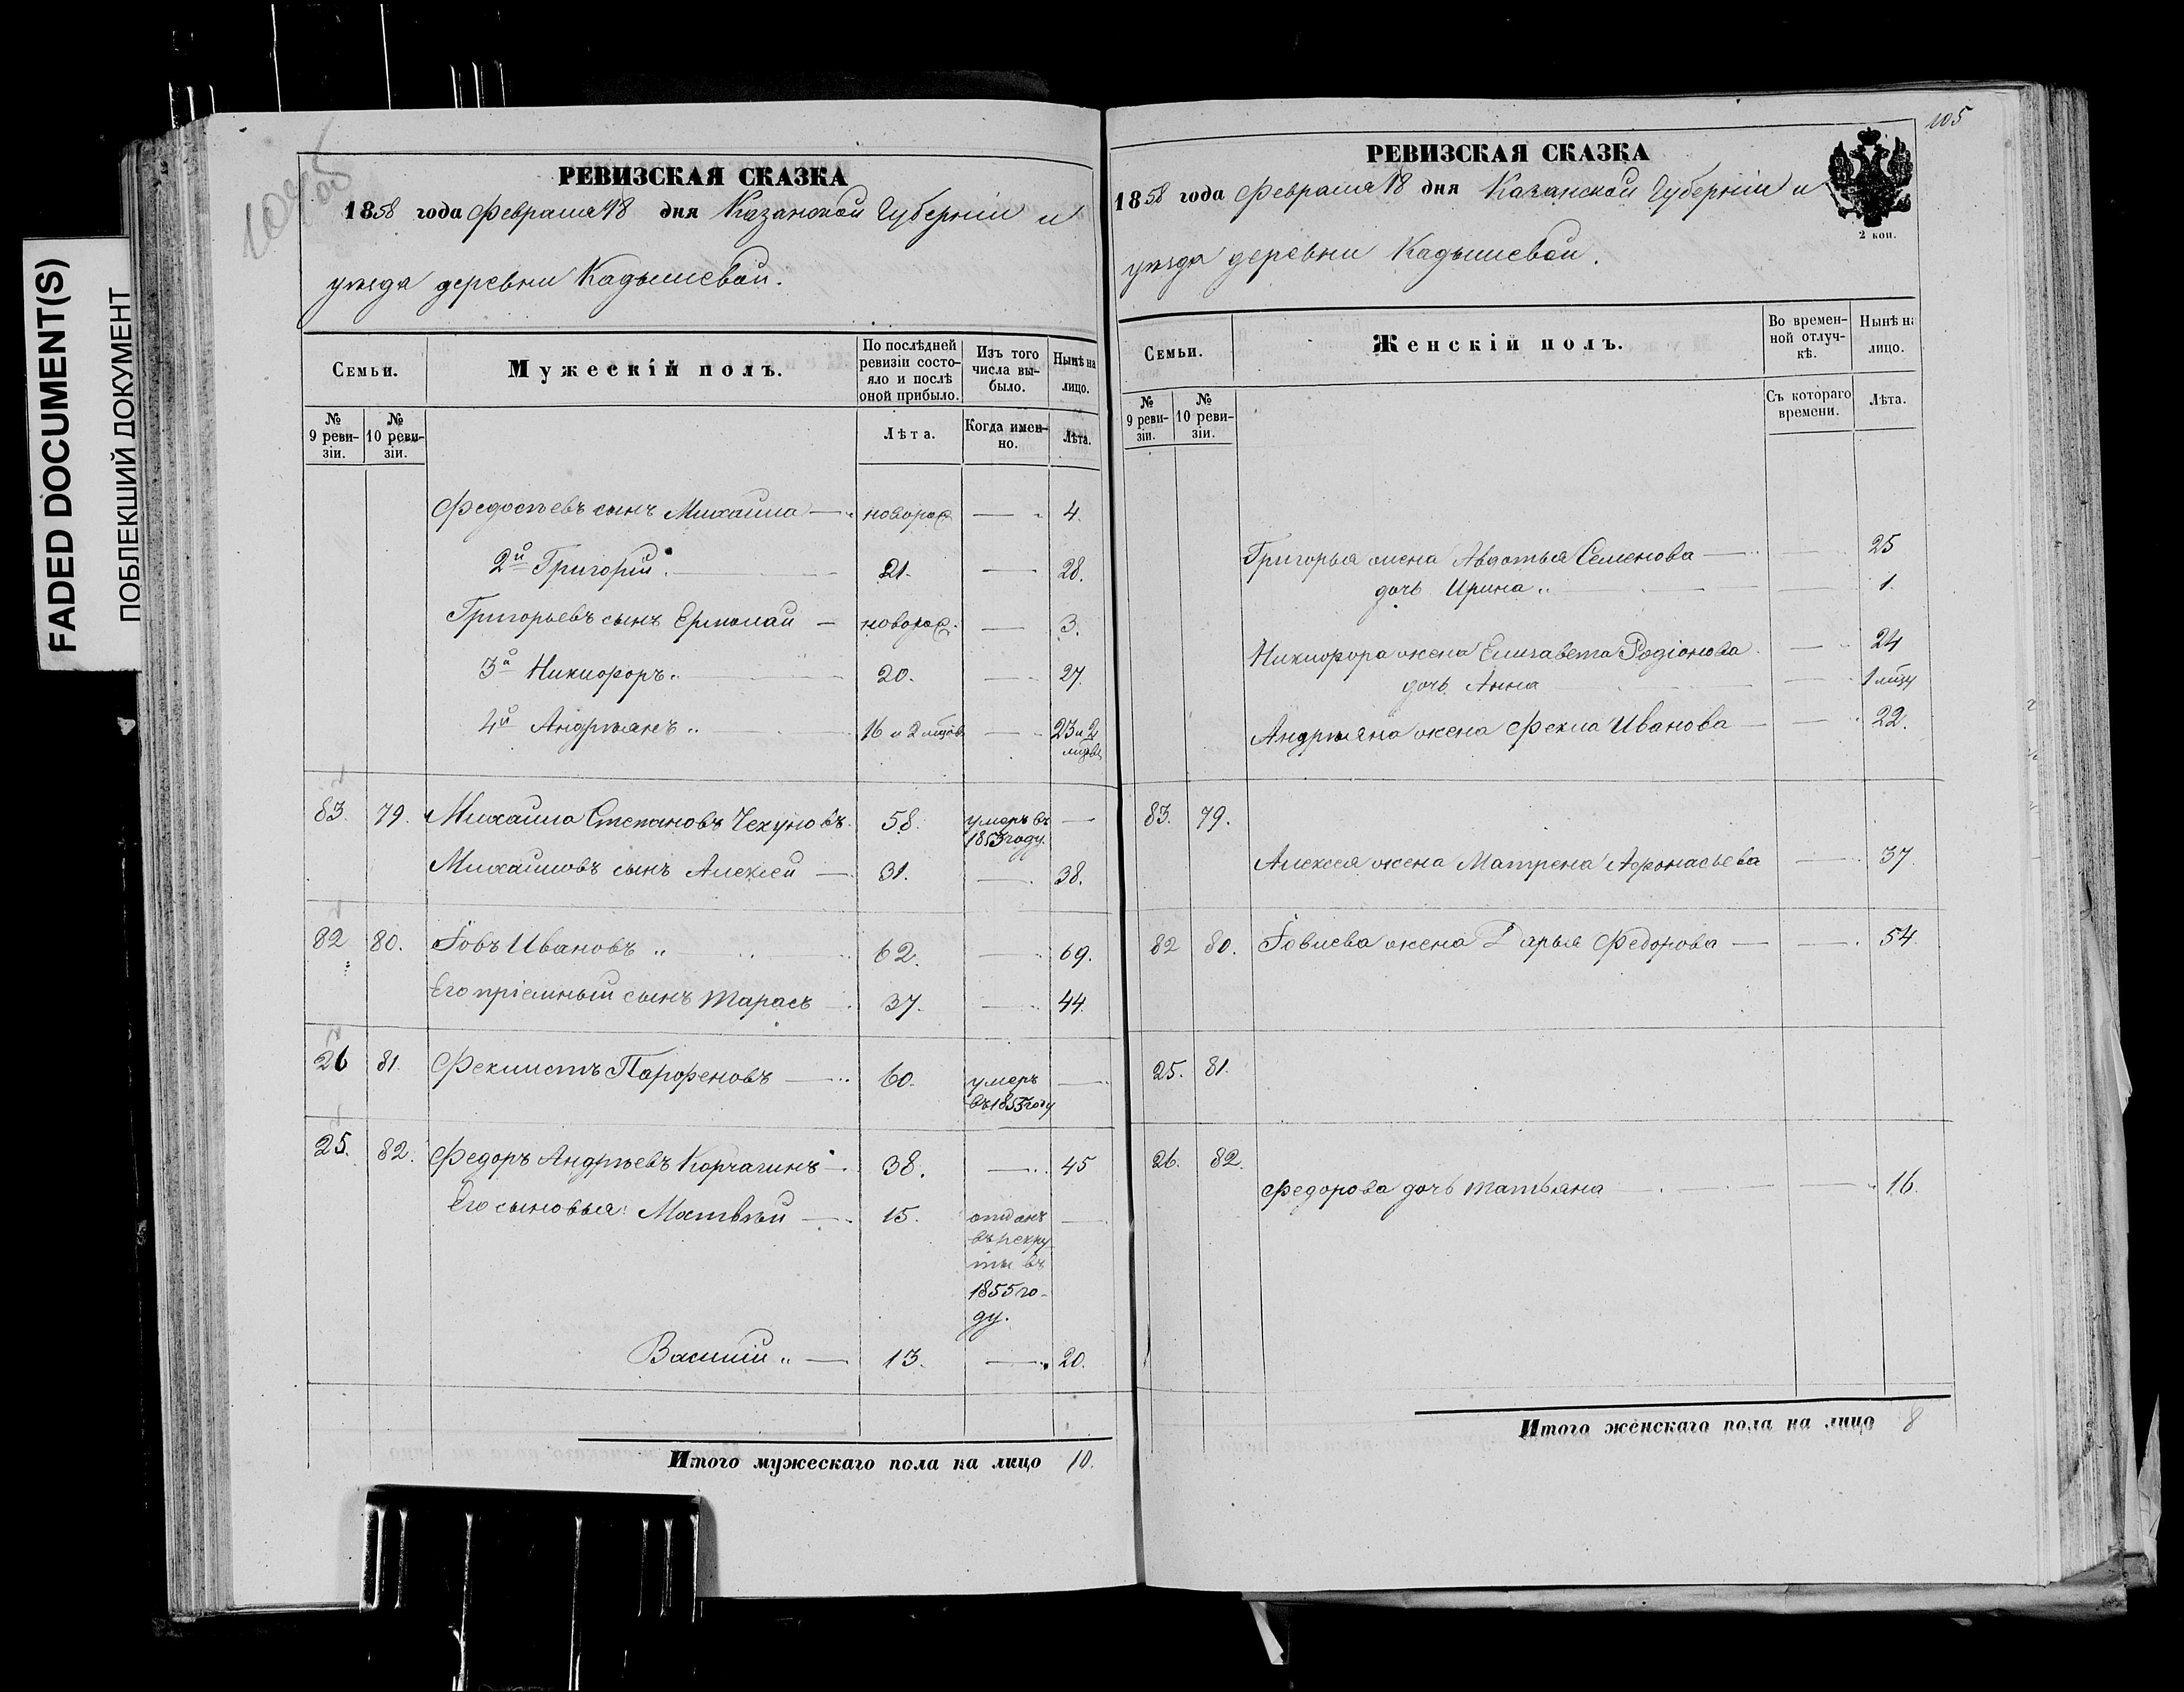 FADED DOCUMENT(S)
ПОБЛЕКШИЙ ДОКУМЕНТ
РЕВИЗСКАЯ СКАЗКА
1858 года Февраля 18 дня Казанской Губерніи и
уѣзда деревни Кадышевой.
Семьи.
Мужескій полъ.
По послѣдней ревизіи состояло и послѣ оной прибыло.
Изъ того числа выбыло.
Нынѣ на лицо.
№ 9 ревизіи.
№ 10 ревизіи.
Лѣта.
Когда именно.
Лѣта.
Федосѣевъ сынъ Михайла — новорож — 4.
2й Григорій. 21. — 28.
Григорьевъ сынъ Ермолай — новорож. — 3.
3й Никифоръ. 20. — 27.
4й Андрѣянъ 16 и 2 мѣсяц — 23 и 2
83. 79. Михайло Степановъ Чекуновъ. 58. умеръ въ —
1853 году.
Михайловъ сынъ Алексѣй — 31. — 38.
82 80. Іовъ Ивановъ 62. — 69.
Его пріемный сынъ Тарасъ 37. — 44.
26 81. Феклистъ Парфеновъ — 60. умеръ —
въ 1853 году
25. 82. Федоръ Андрѣевъ Корчагинъ — 38. — 45
Его сыновья: Матвѣй — 15. отданъ —
въ рекру
ты въ
1855 го-
ду.
Василій — 13. — 20.
Итого мужескаго пола на лицо 10.
105
РЕВИЗСКАЯ СКАЗКА
1858 года Февраля 18 дня Казанской Губерніи и
2 коп.
уѣзда деревни Кадышевой.
Семьи.
Женскій полъ.
Во временной отлучкѣ.
Нынѣ на лицо.
№ 9 ревизіи.
№ 10 ревизіи.
Съ котораго времени.
Лѣта.
Григорья жена Авдотья Семенова — 25
дочь Ирина 1.
Никифора жена Елизавета Родіонова — 24
дочь Анна — 1 мѣсц
Андрѣяна жена Фекла Иванова — 22.
83. 79.
Алексея жена Матрена Афонасьева — 37
82 80. Іовлева жена Дарья Федорова — 54
25. 81.
26. 82.
Федорова дочь Татьяна — 16.
Итого женскаго пола на лицо 8